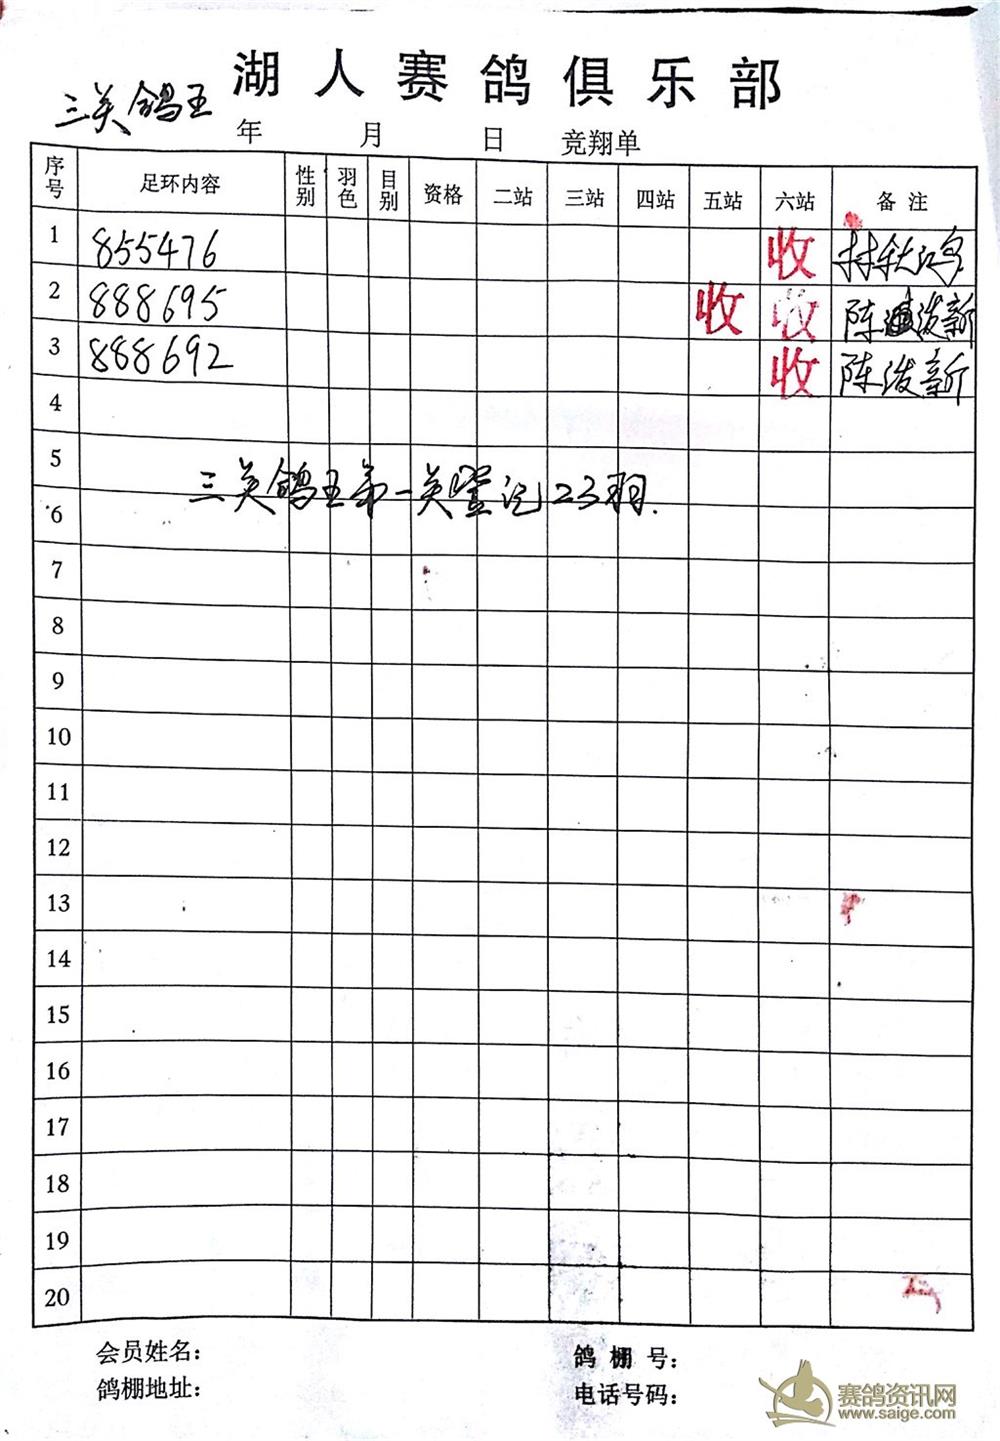 湖人赛鸽俱乐部
三关鸽王
年 月 日 竞翔单
序号 足环内容 性别 羽色 目别 资格 二站 三站 四站 五站 六站 备注
1 855476 收 林秋鸿
2 888695 收 收 陈浚新
3 888692 收 陈浚新
4
5
三关鸽王第一关登记23羽.
6
7
8
9
10
11
12
13
14
15
16
17
18
19
20
会员姓名： 鸽棚号：
鸽棚地址： 电话号码：
赛鸽资讯网
www.saige.com